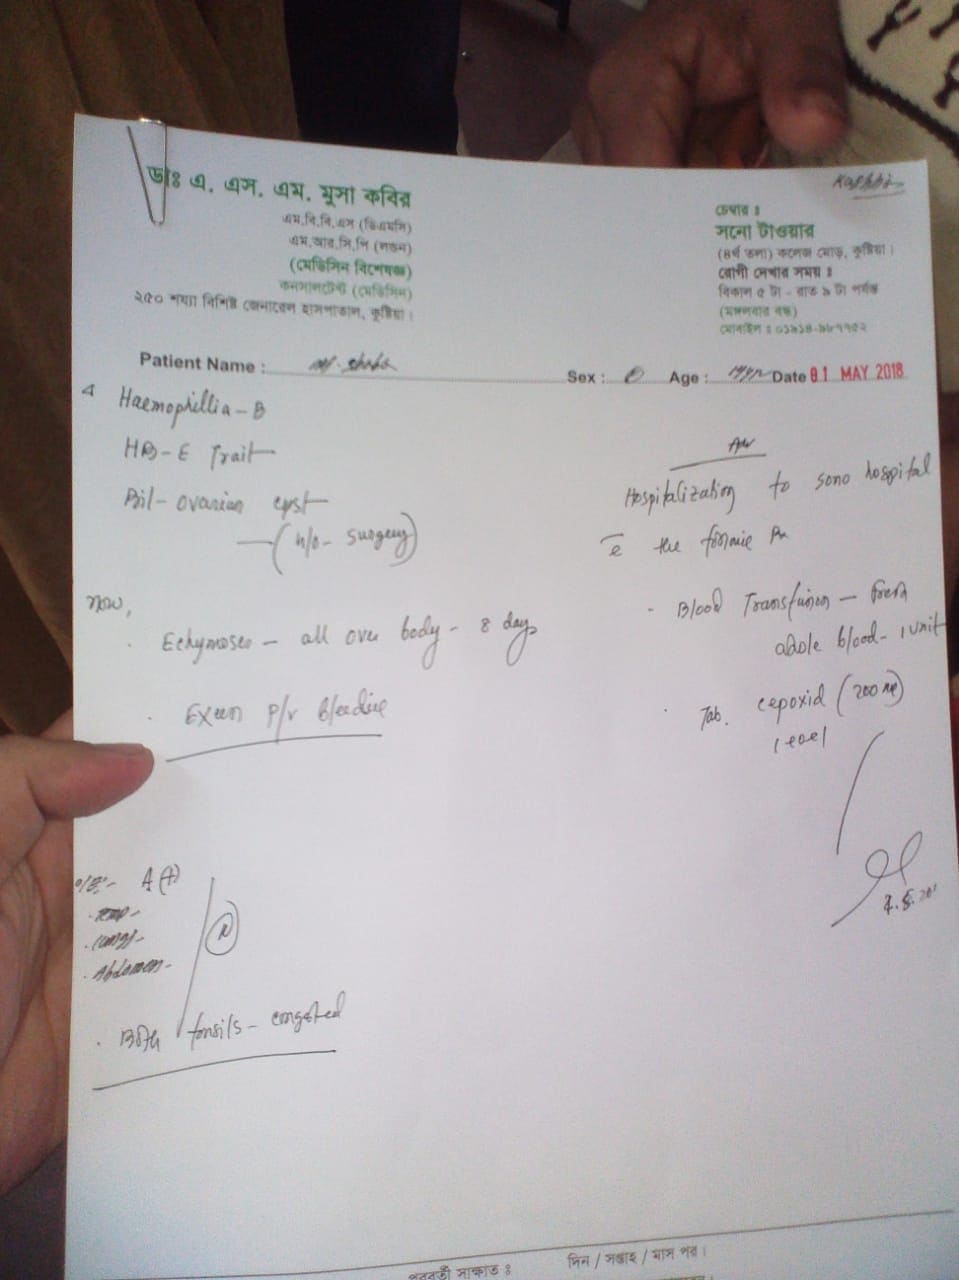 ডাঃ এ. এস. এম. মুসা কবির
এম.বি.বি.এস (ডিএমসি)
এম.আর.সি.পি (লন্ডন)
(মেডিসিন বিশেষজ্ঞ)
কনসালটেন্ট (মেডিসিন)
২৫০ শয্যা বিশিষ্ট জেনারেল হাসপাতাল, কুষ্টিয়া।
চেম্বার :
সনো টাওয়ার
(৪র্থ তলা) কলেজ মোড়, কুষ্টিয়া।
রোগী দেখার সময় :
বিকাল ৫ টা - রাত ৯ টা পর্যন্ত
(মঙ্গলবার বন্ধ)
মোবাইল :
Patient Name :
Sex : Age : Date 01 MAY 2018
Haemophillia - B
HB - E Trait
Bil - ovarian cyst
(H/O - Surgery)
Now,
Echymoses - all over body - 8 days
P/V bleeding
O/E:- A (+)
Temp -
Lungs -
Abdomen -
N
Both tonsils - congested
Adv
Hospitalization to sono hospital
the
Blood Transfusion - Fresh
blood - 1 unit
Tab. cepoxid (200 mg)
পরবর্তী সাক্ষাত : দিন / সপ্তাহ / মাস পর।